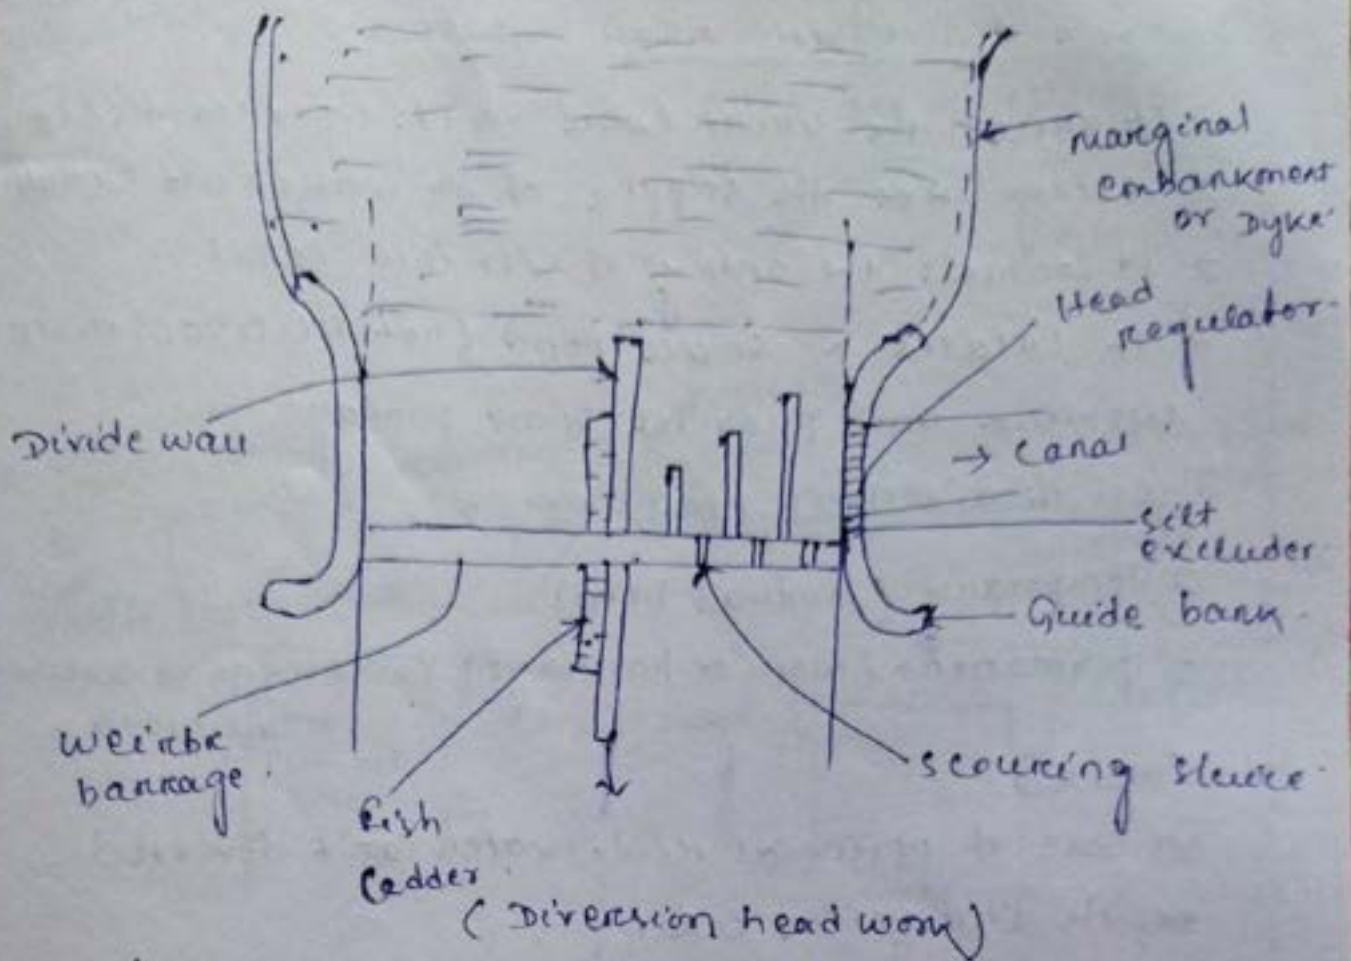 marginal
embankment
or Dyke
Head
regulator
Divide wall
→ Canal
silt
excluder
Guide bank
weir or
barrage
scouring sluice
Fish
Ladder
(Diversion head work)